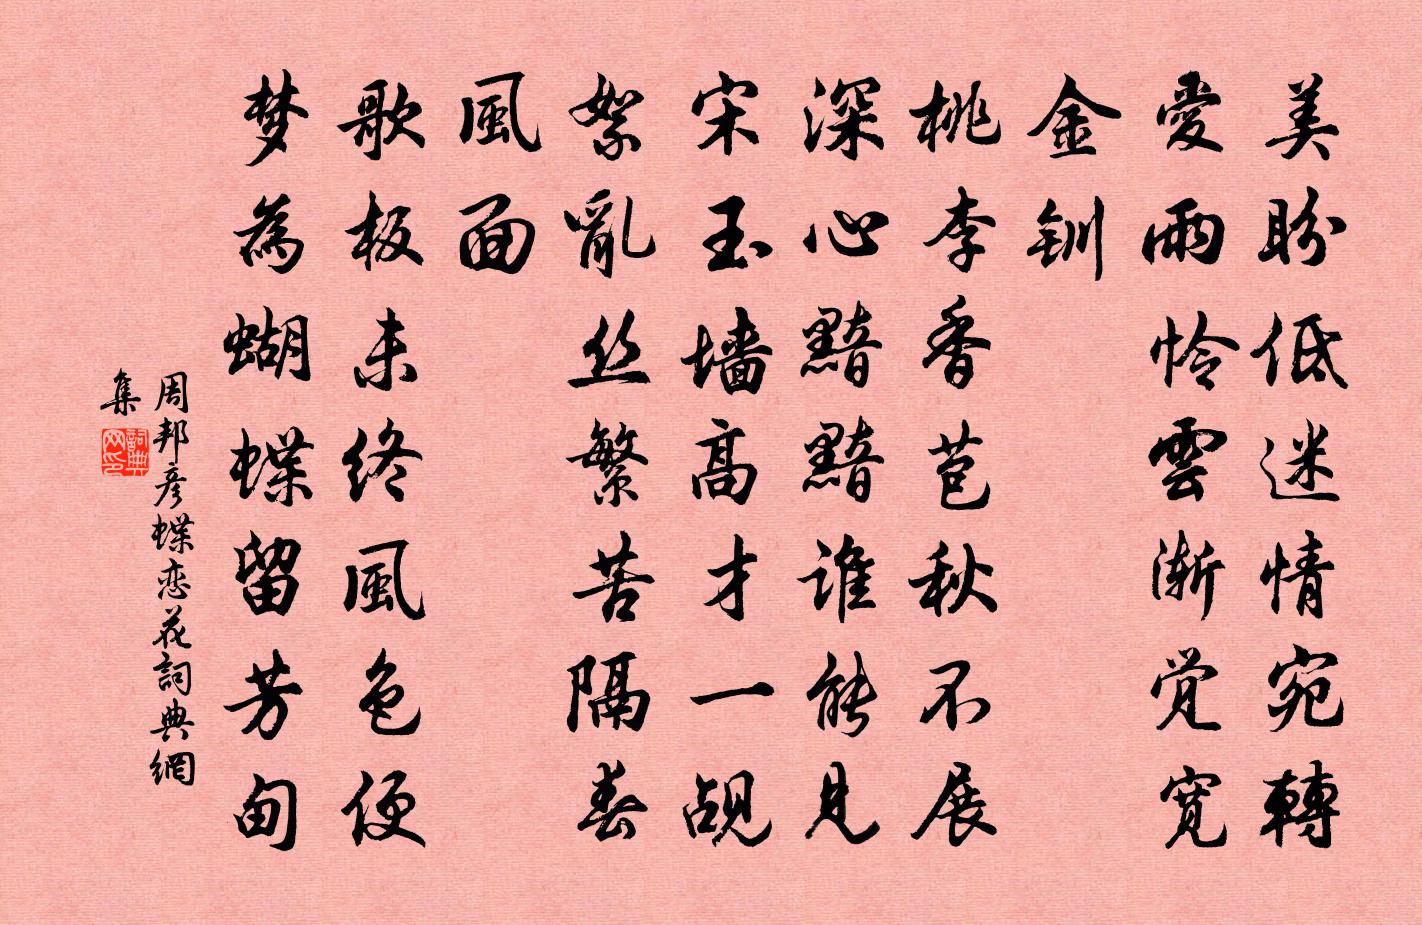 美盼低迷情宛轉
愛雨怜雲漸觉寬
金钏
桃李香苞秋不展
深心黯黯谁能見
宋玉墙高才一觇
絮亂丝繁苦隔春
風面
歌板未终風色便
梦為蝴蝶留芳甸
周邦彦蝶恋花詞典網
集
詞典
网印